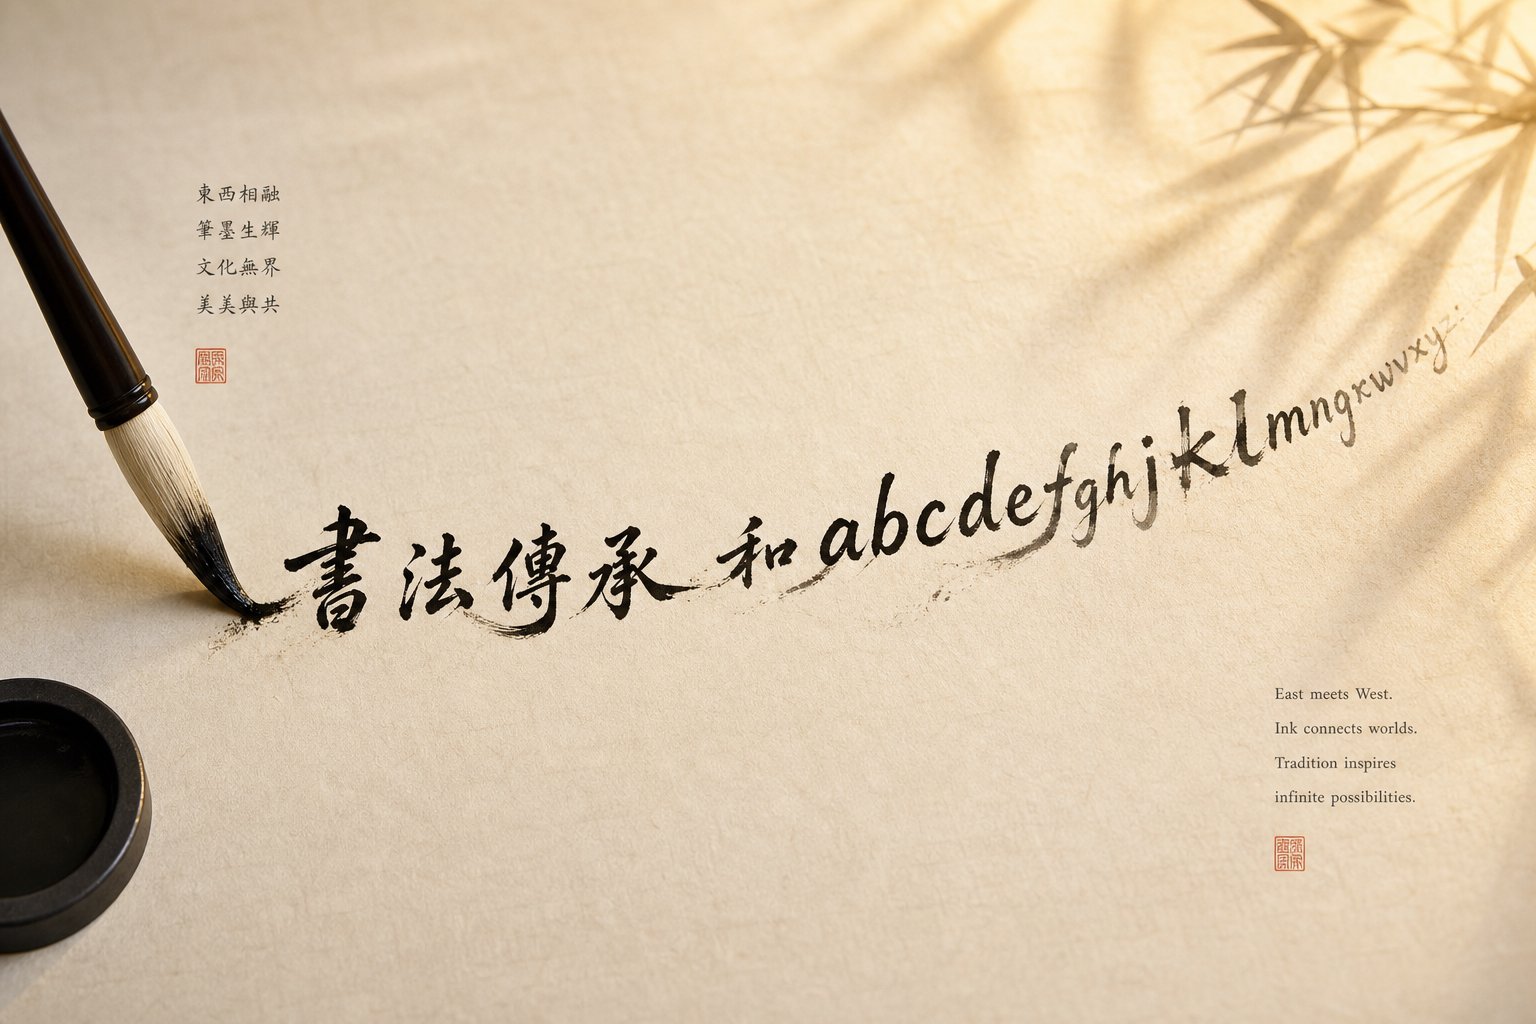 東西相融
筆墨生輝
文化無界
美美與共
書法傳承 和 abcdefghjklmngxwvxyz
East meets West.
Ink connects worlds.
Tradition inspires
infinite possibilities.